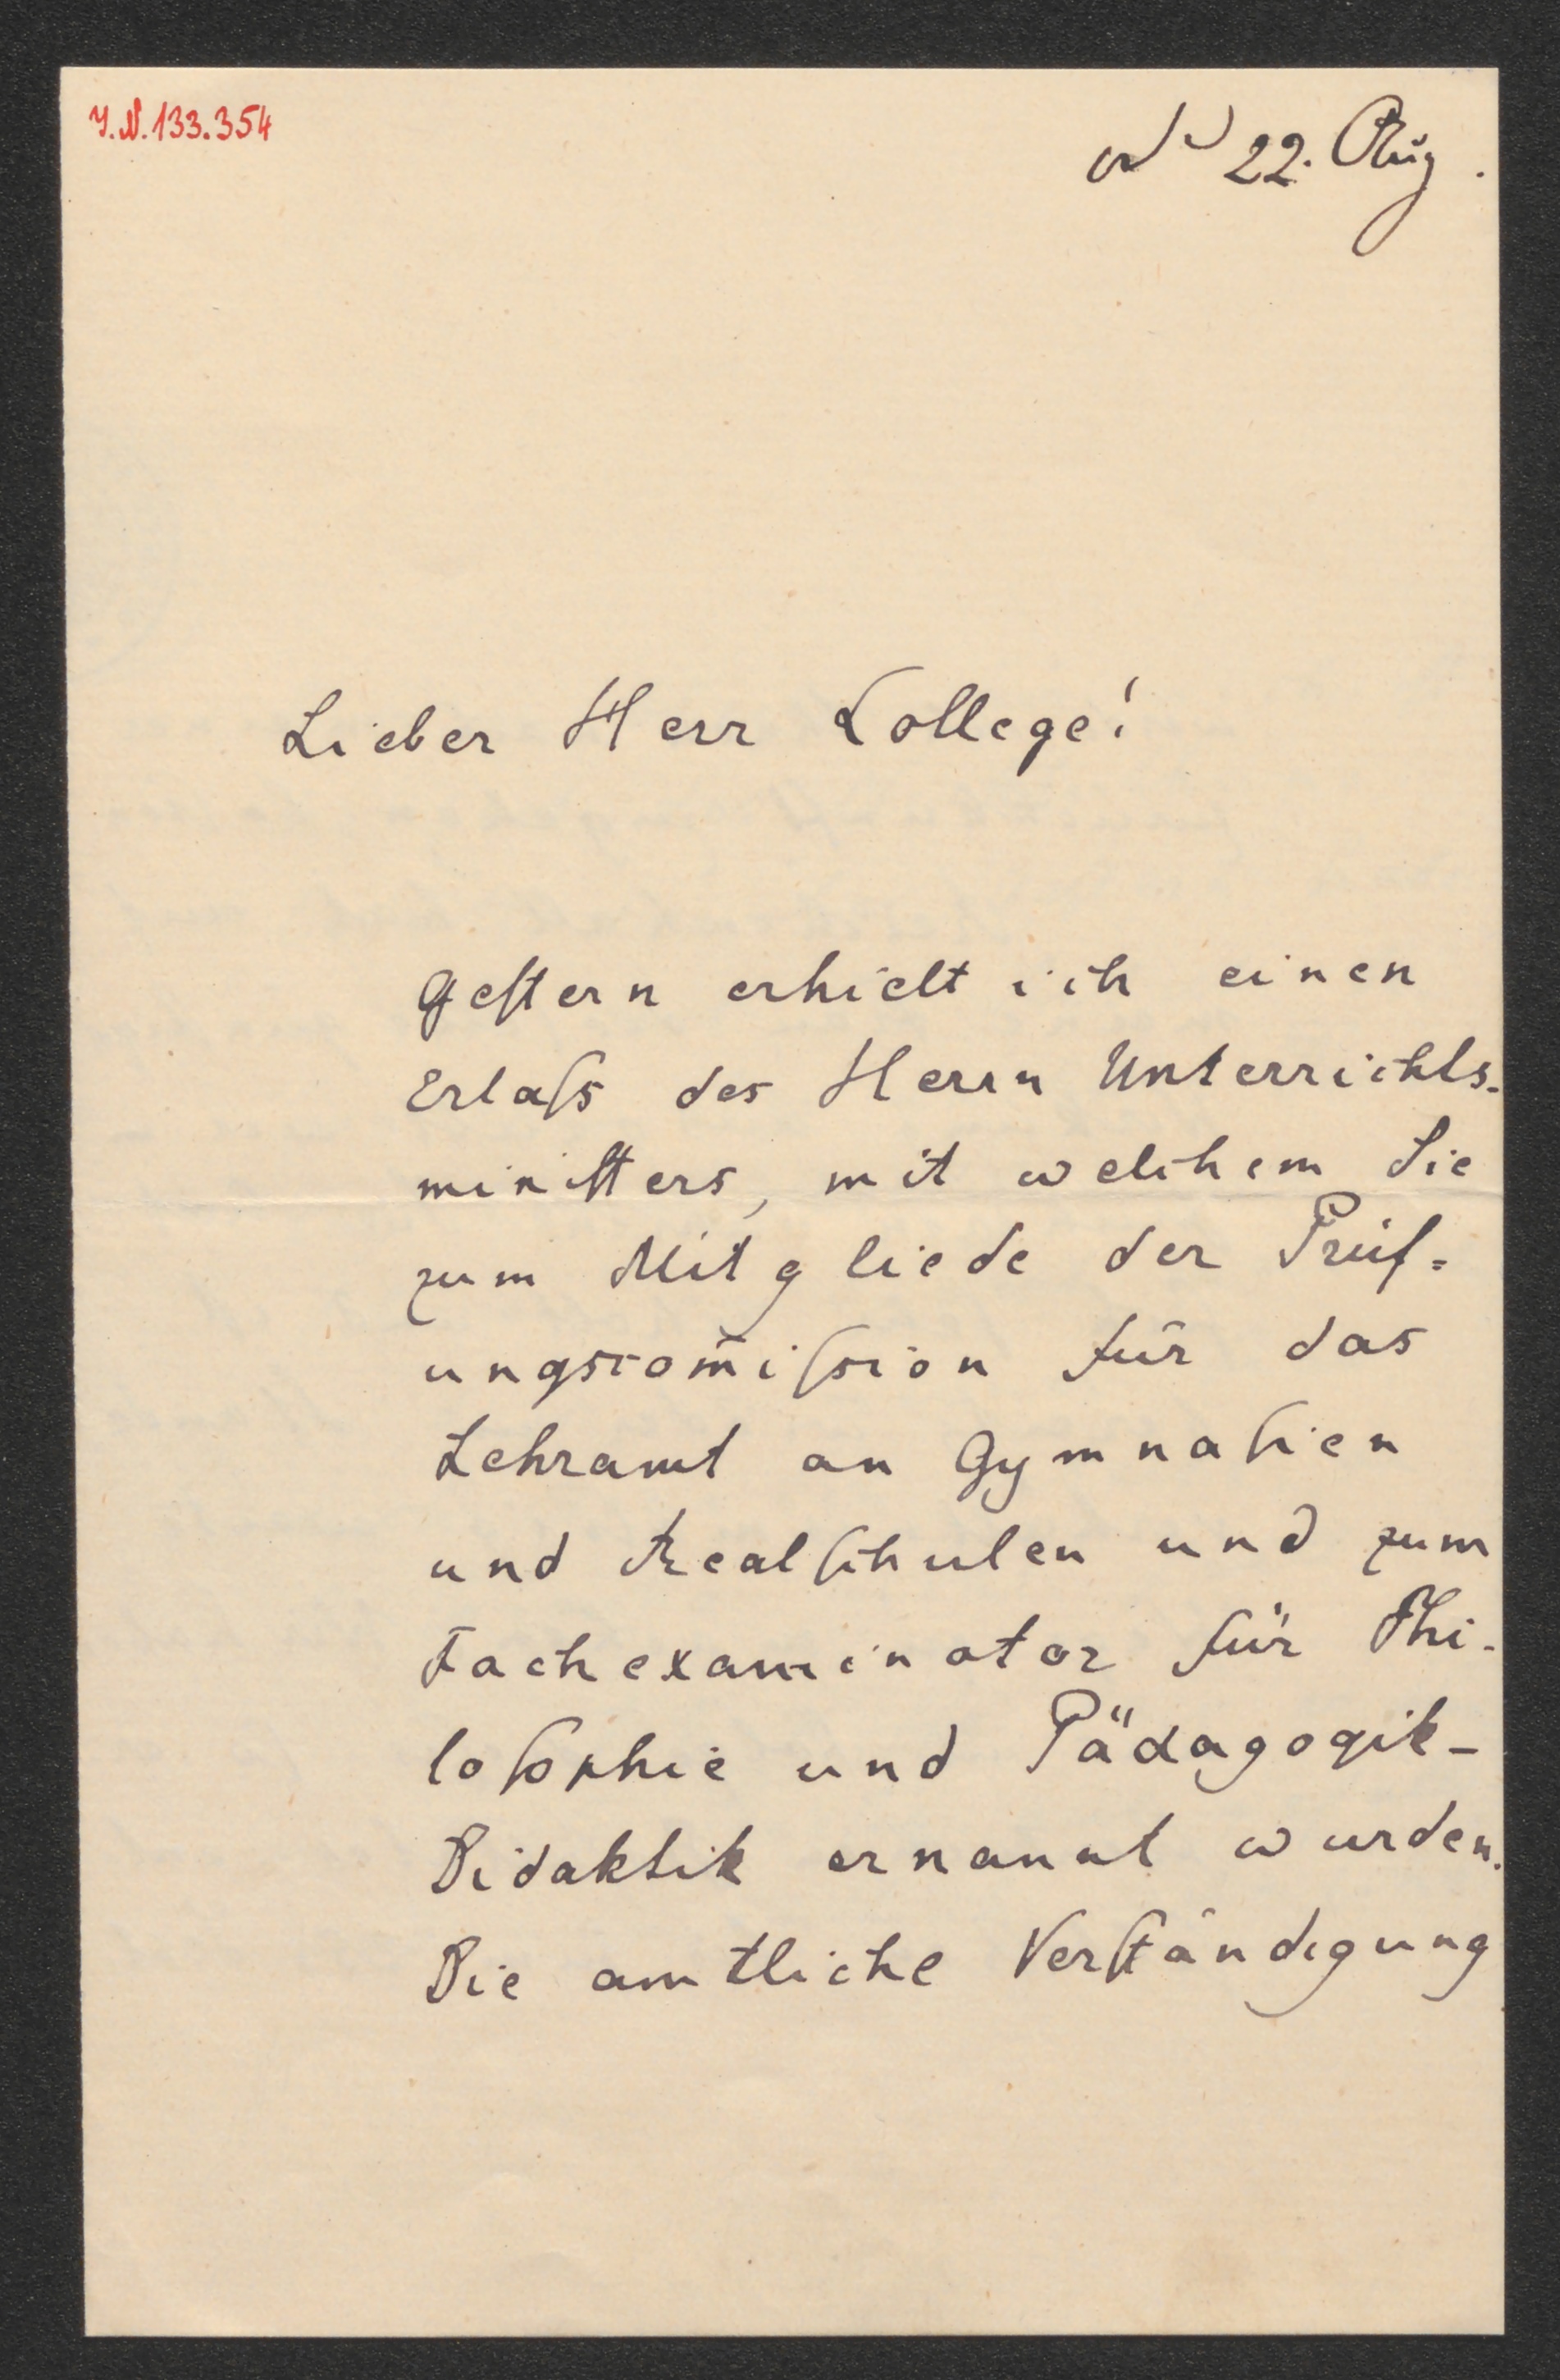 I.N. 133.354
22. Aug.
Lieber Herr College!
Gestern erhielt ich einen
Erlaſs des Herrn Unterrichts-
ministers, mit welchem Sie
zum Mitgliede der Prüf-
ungscom̄iſsion für das
Lehramt an Gymnaſien
und Realſchulen und zum
Fachexaminator für Phi-
loſophie und Pädagogik-
Didaktik ernannt wurden.
Die amtliche Verſtändigung